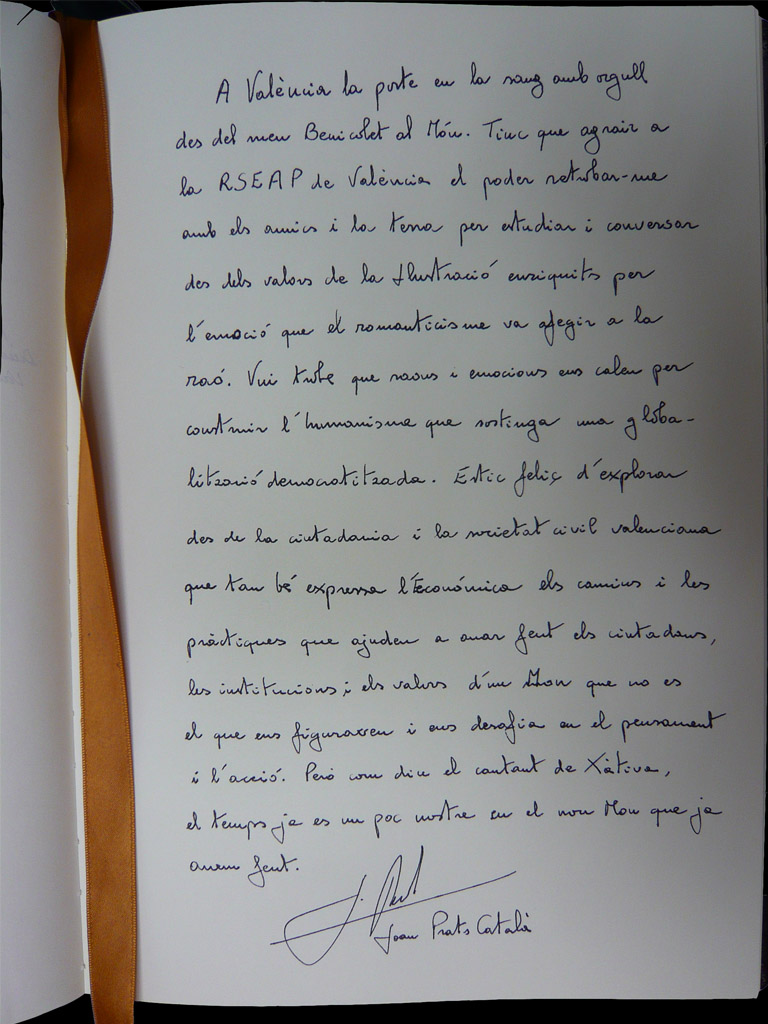 A València la porte en la sang amb orgull
des del meu Benicolet al Món. Tinc que agrair a
la RSEAP de València el poder retrobar-me
amb els amics i la terra per estudiar i conversar
des dels valors de la Ilustració enriquits per
l'emoció que el romanticisme va afegir a la
raó. Vui trobe que raons i emocions ens calen per
construir l'humanisme que sostinga una globa-
lització democratitzada. Estic feliç d'explorar
des de la ciutadania i la societat civil valenciana
que tan bé expressa l'Econòmica els camins i les
pràctiques que ajuden a anar fent els ciutadans,
les institucions i els valors d'un Mon que no es
el que ens figuravem i ens desafia en el pensament
i l'acció. Però com diu el cantant de Xàtiva,
el temps ja es un poc nostre en el nou Mon que ja
anem fent.
Joan Prats Català